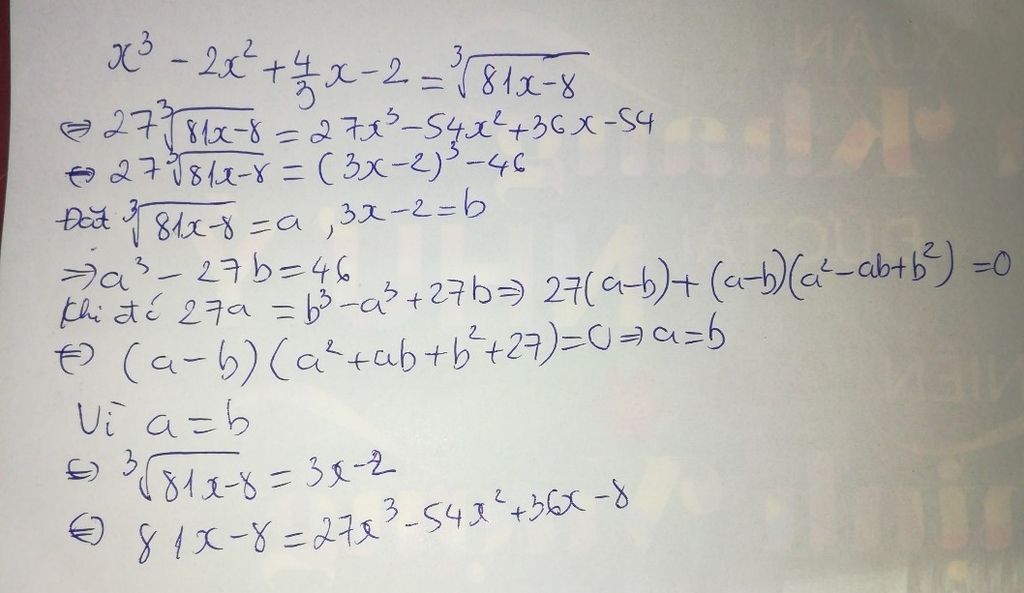 x³ - 2x² + 4/3 x - 2 = ∛(81x-8)
⇔ 27∛(81x-8) = 27x³ - 54x² + 36x - 54
⇔ 27∛(81x-8) = (3x-2)³ - 46
Đặt ∛(81x-8) = a , 3x-2 = b
⇒ a³ - 27b = 46
Khi đó 27a = b³ - a³ + 27b ⇒ 27(a-b) + (a-b)(a² - ab + b²) = 0
⇔ (a-b)(a² + ab + b² + 27) = 0 ⇒ a = b
Vì a = b
⇔ ∛(81x-8) = 3x-2
⇔ 81x-8 = 27x³ - 54x² + 36x - 8